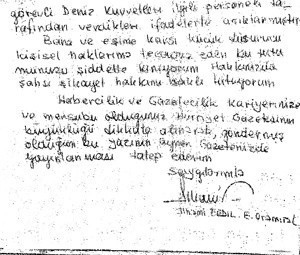 görevli Deniz Kuvvetleri ilgili personeli ta-
rafından verdikleri ifadelerle açıklanmıştır.
Bana ve eşime karşı küçük düşürücü
kişisel haklarıma tecavüz eden bu tutu
munuzu şiddetle kınıyorum Hakkınızda
şahsi şikayet hakkımı saklı tutuyorum
Habercilik ve Gazetecilik kariyerinize
ve mensubu olduğunuz Hürriyet Gazetesinin
büyüklüğü dikkate alınarak, göndermiş
olduğum bu yazının aynen Gazetenizde
yayınlanması talep ederim
Saygılarımla
E. Oramiral